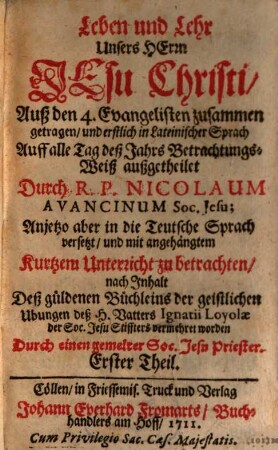 Leben und Lehr
Unsers HErrn
JEsu Christi/
Auß den 4. Evangelisten zusammen
getragen/ und erstlich in Lateinischer Sprach
Auff alle Tag deß Jahrs Betrachtungs-
Weiß außgetheilet
Durch R. P. NICOLAUM
AVANCINUM Soc. Jesu;
Anjetzo aber in die Teutsche Sprach
versetzt/ und mit angehängtem
Kurtzem Unterricht zu betrachten/
nach Inhalt
Deß güldenen Büchleins der geistlichen
Ubungen deß H. Vatters Ignatii Loyolæ
der Soc. Jesu Stiffters vermehrt worden
Durch einen gemelter Soc. Jesu Priester.
Erster Theil.
Cöllen/ in Friessemis. Truck und Verlag
Johann Everhard Fromarts/ Buch-
handlers am Hoff/ 1711.
Cum Privilegio Sac. Cæs. Majestatis.